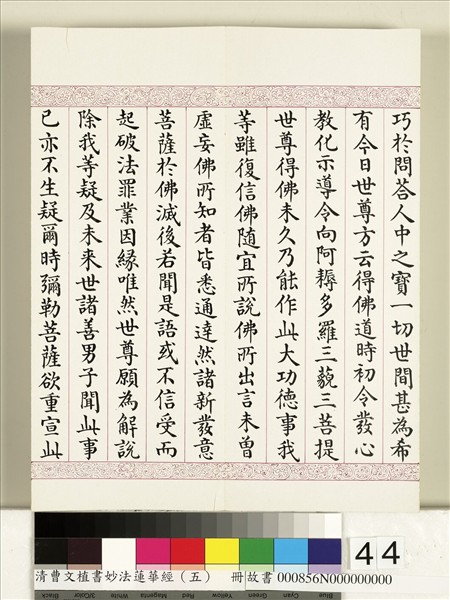 巧於問荅人中之寶一切世間甚為希
有今日世尊方云得佛道時初令發心
教化示導令向阿耨多羅三藐三菩提
世尊得佛未久乃能作此大功德事我
等雖復信佛隨宜所說佛所出言未曾
虛妄佛所知者皆悉通達然諸新發意
菩薩於佛滅後若聞是語或不信受而
起破法罪業因緣唯然世尊願為解說
除我等疑及未來世諸善男子聞此事
已亦不生疑爾時彌勒菩薩欲重宣此
44
清曹文植書妙法蓮華經（五） 冊故書 000856N000000000
Black 3/Color White Magenta Red Yellow Green Cyan Blue